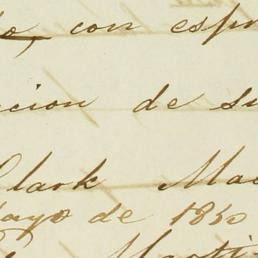 con espr
cion de su
Clark Mac
Mayo de 1860
Marti